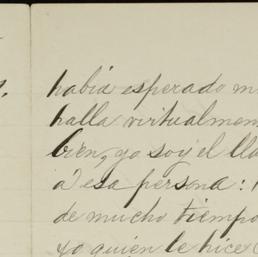 había esperado m
halla virtualmen
bien, yo soy el lla
a esa persona:
de mucho tiempo
yo quien le hice